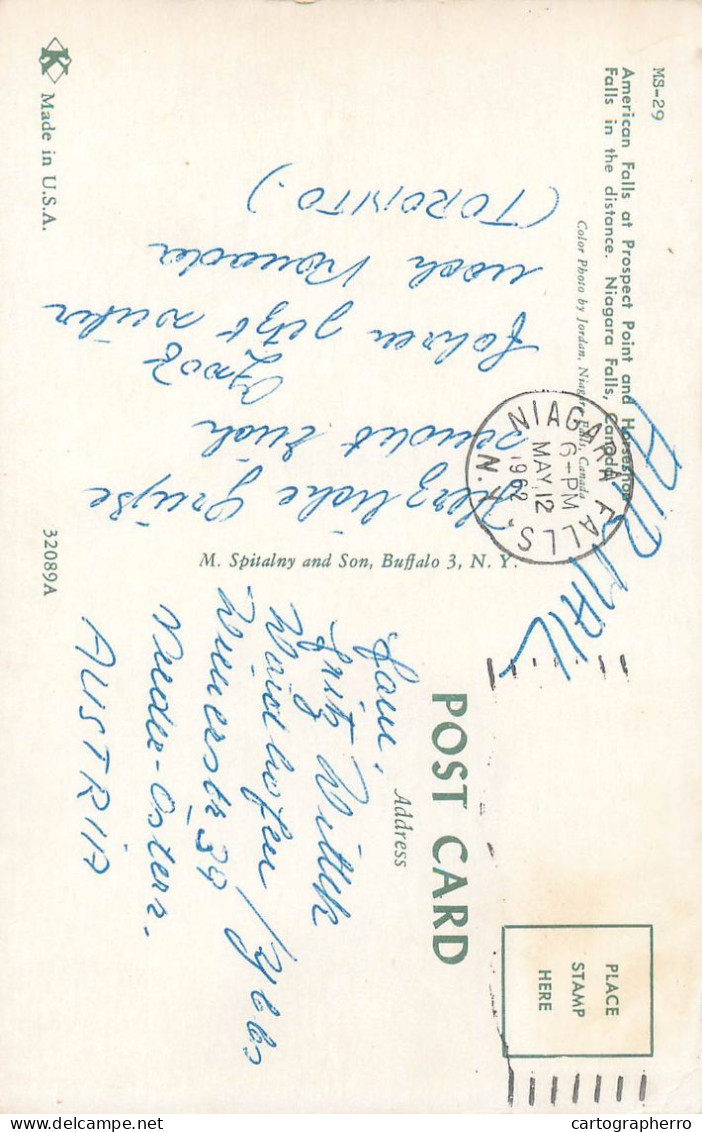 MS-29
American Falls at Prospect Point and Horseshoe
Falls in the distance. Niagara Falls, Canada
Color Photo by Jordan, Niagara Falls, Canada
AIR MAIL
NIAGARA FALLS, N.Y.
6-PM
MAY 12
1962
Herzliche Grüße
sendet Euch
fahren jetzt weiter
nach Kanada
(TORONTO.)
M. Spitalny and Son, Buffalo 3, N. Y.
POST CARD
Address
PLACE
STAMP
HERE
Fam.
Fritz Wittek
Waidhofen/Ybbs
Wienerstr 39
Nieder-Österr.
AUSTRIA
K
Made in U.S.A.
32089A
cartographerro